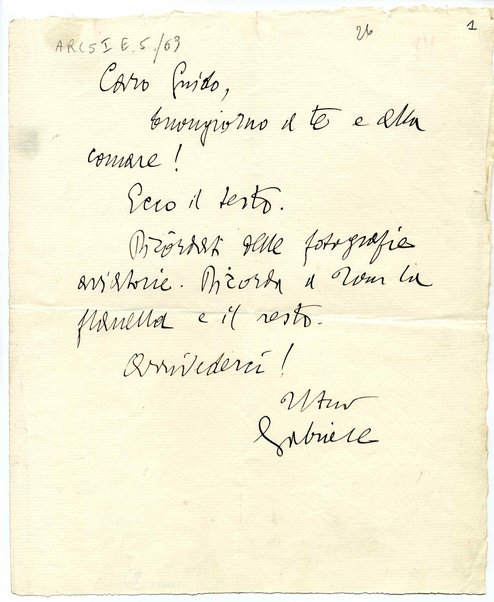 ARCS I E. 5./69
26
1
Caro Guido,
buongiorno a te e alla
comare!
Ecco il testo.
Ricordati delle fotografie
aviatorie. Ricorda a la
flanella e il resto.
Arrivederci!
Gabriele